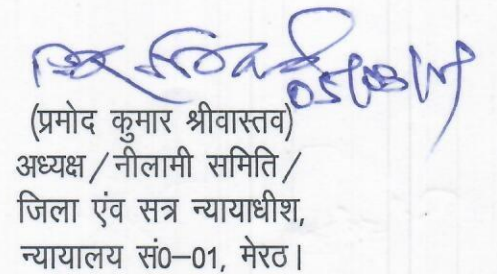 (प्रमोद कुमार श्रीवास्तव)
अध्यक्ष/नीलामी समिति/
जिला एंव सत्र न्यायाधीश,
न्यायालय सं0–01, मेरठ।